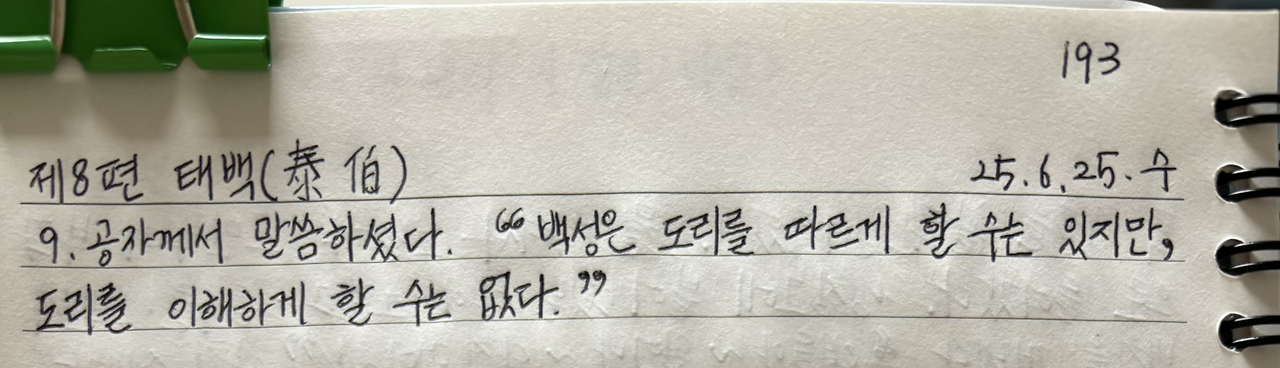 193
제8편 태백(泰伯) 25.6.25.수
9. 공자께서 말씀하셨다. “백성은 도리를 따르게 할 수는 있지만,
도리를 이해하게 할 수는 없다.”